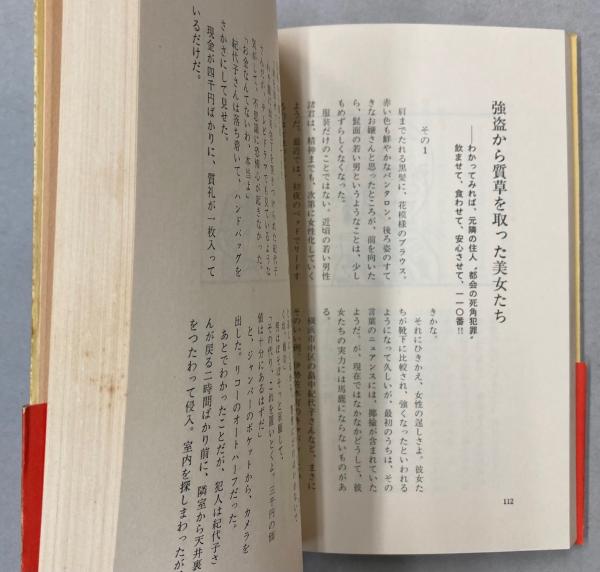 強盗から質草を取った美女たち
――わかってみれば、元隣の住人〝都会の死角犯罪〟
飲ませて、食わせて、安心させて、一一〇番!!
その1
肩までたれる黒髪に、花模様のブラウス、
赤い色も鮮やかなパンタロン。後ろ姿のすて
きなお嬢さんと思ったところが、前を向いた
ら、髭面の若い男というようなことは、少し
もめずらしくなくなった。
服装だけのことではない。近頃の若い男性
諸君は、精神までも、次第に女性化していく
ようだ。最近では、初夜のベッドでリードす
きかな。
それにひきかえ、女性の逞しさよ。彼女た
ちが靴下に比較され、強くなったといわれる
ようになって久しいが、最初のうちは、その
言葉のニュアンスには、揶揄が含まれていた
ようだ。が、現在ではなかなかどうして、彼
女たちの実力には馬鹿にならないものがあ
る。
横浜市中区の畠中紀代子さんなど、まさに
そのいい例。
112
気がして、不思議に恐怖心が起きなかった。
「お金なんてないわ、本当よ」
紀代子さんは落ち着いて、ハンドバッグを
さかさにして見せた。
現金が四千円ばかりに、質札が一枚入って
いるだけだ。
「その代り、これを置いとくよ。三千円の価
値は十分にあるはずだ」
と、ジャンパーのポケットから、カメラを
出した。リコーのオートハーフだった。
あとでわかったことだが、犯人は紀代子さ
んが戻る二時間ばかり前に、隣室から天井裏
をつたわって侵入。室内を探しまわったが、